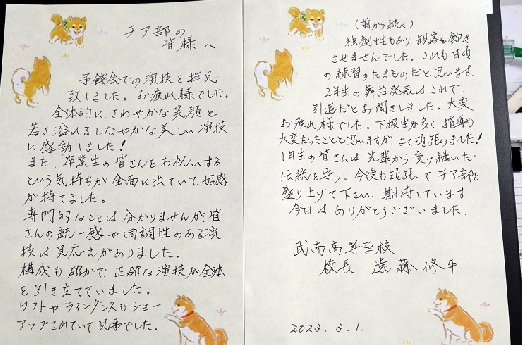 チア部の
皆様へ
予餞会での演技を拝見
致しました。お疲れ様でした。
全体的にさわやかな笑顔と
若さ溢れるしなやかな美しい演技
に感動しました!
また卒業生の皆さんをお祝いする
という気持ちが全面に出ていて好感
が持てました。
専門的なことは分かりませんが皆
さんの統一感や同調性のある演
技は見応えがありました。
構成も確かで正確な演技が全体
を引き立てていました。
リフトやラインダンスもショー
アップされていて見事でした。
規則性もあり観客を飽き
させませんでした。これも日頃
の練習のたまものだと思います。
2年生の皆さんはこれで
引退だとお聞きしました。大変
お疲れ様でした。下級生が多く指導も
大変だったことと思いますがよく頑張りました!
1年生の皆さんは先輩から受け継いだ
伝統を守り、今後も頑張ってチア部を
盛り上げて下さい。期待しています
今日はありがとうございました。
武南高等学校
校長 遠藤修平
2023.3.1.